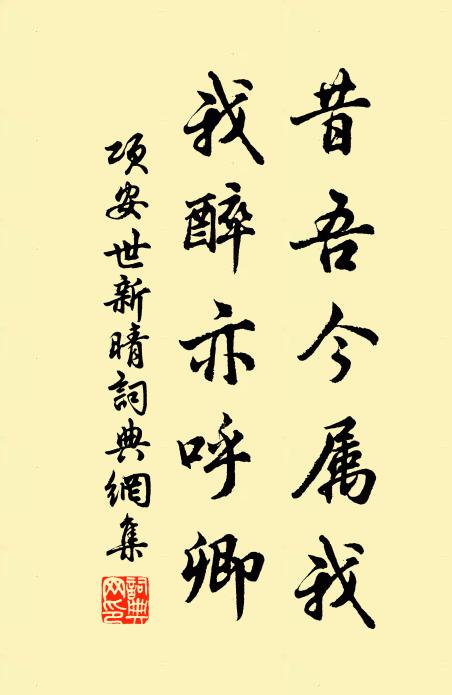 昔吾今属我
我醉亦呼卿
項安世新晴詞典網集
詞典网印